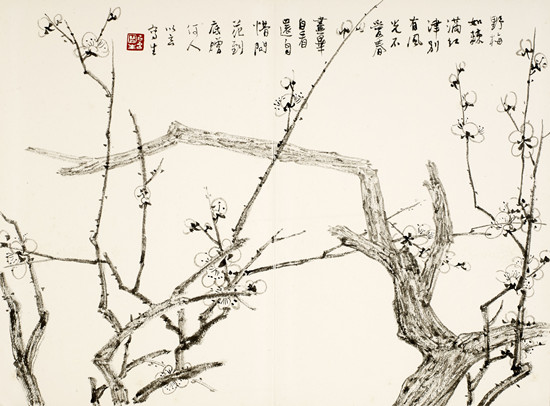 野梅
如棘
滿江
津別
有風
光不
愛春
畫畢
自看
還自
惜問
花到
底贈
何人
寫生